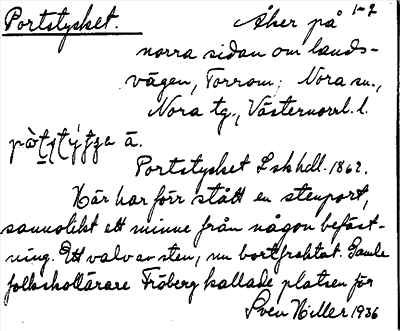 Portstycket. 1-2
Åker på
norra sidan om lands-
vägen, Torrom; Nora sn.,
Nora tg., Västernorrl. l.
ā.
Portstycket Lskhdl. 1862.
Här har förr stått en stenport,
sannolikt ett minne från någon befäst-
ning. Ett valv av sten, nu bortfraktat. Gamle
folkskollärare Fröberg kallade platsen för
Sven Hiller 1936